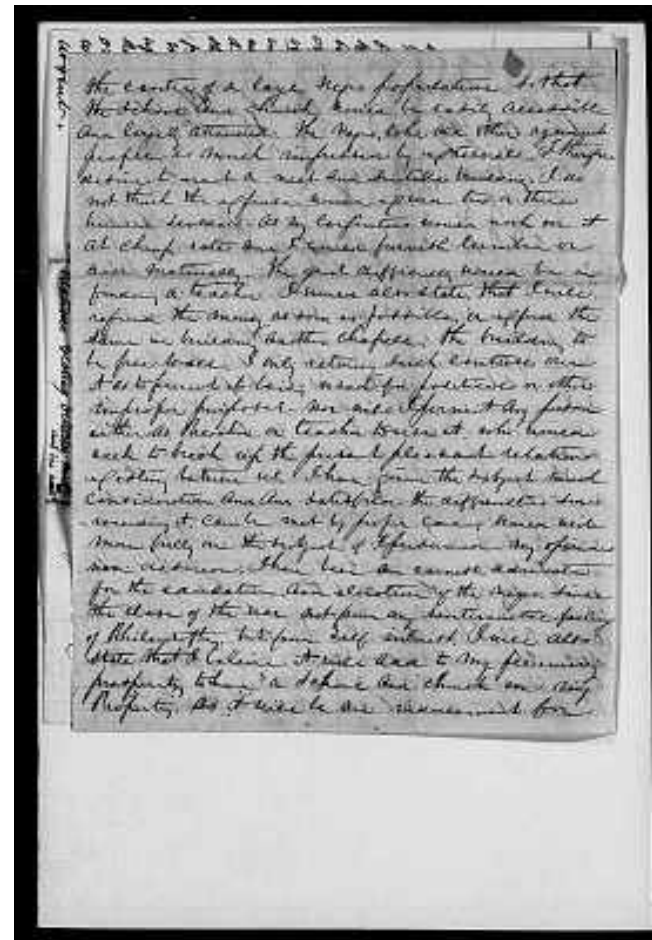 the center of a large Negro population so that
the School and Church would be easily accessible
and largely attended. The Negro, like all other ignorant
people is much impressed by externals. I therefore
desire to erect a neat and suitable building. I do
not think the expense would exceed two or three
hundred dollars. As my carpenters would work on it
at cheap rates and I would furnish lumber or
other materials. The great difficulty would be in
finding a teacher. I would also state, that I will
refund the money as soon as possible, or expend the
same in building another chapel, the building to
be free to all. I only retaining such control over
it as to prevent its being used for political or other
improper purposes. Nor will I permit any person
either as Preacher or teacher to use it, who would
seek to break up the present pleasant relations
existing between us. I have given the subject much
consideration and am satisfied the difficulties sur
rounding it, can be met by proper care,
more fully on the subject if
I have been an earnest advocate
for the education and elevation of the Negro since
the close of the war not from any sentimental feeling
of Philanthropy, but from self interest. I will also
state that I believe it will add to my pecuniary
prosperity to have a School and Church on my
Property. As it will be an inducement for